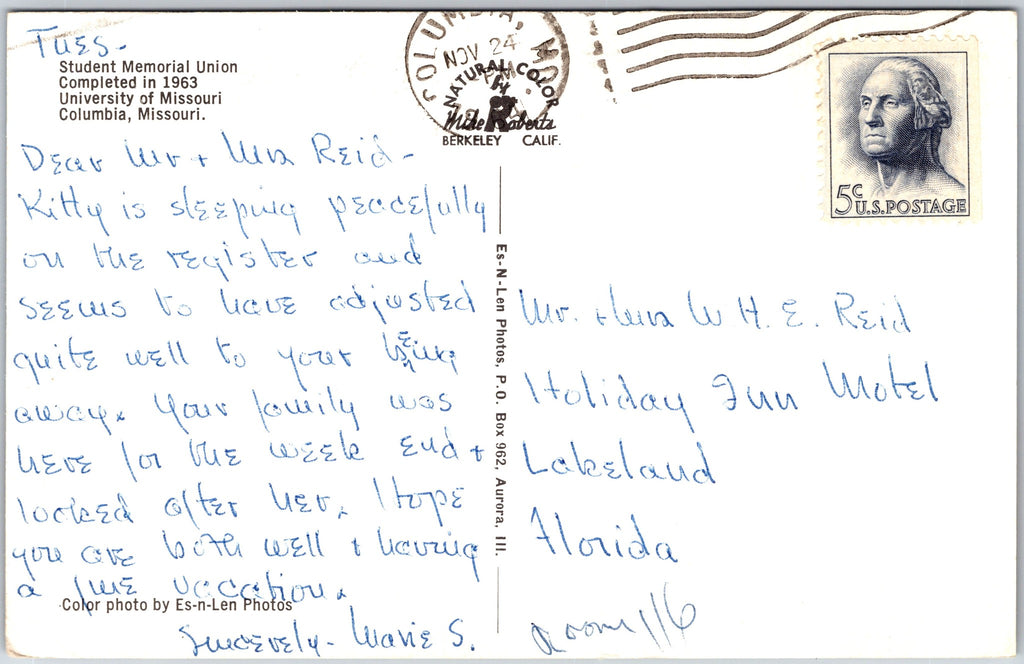 Tues-
Student Memorial Union
Completed in 1963
University of Missouri
Columbia, Missouri.
Dear Mr + Mrs Reid-
Kitty is sleeping peacefully
on the register and
seems to have adjusted
quite well to your being
away. Your family was
here for the week end +
looked after her. Hope
you are both well + having
a fine vacation.
Color photo by Es-n-Len Photos
Sincerely- Marie S.
COLUMBIA, MO.
NOV 24
PM
NATURAL COLOR
Mike Roberts
BERKELEY CALIF.
Es-N-Len Photos, P.O. Box 962, Aurora, Ill.
5c
U.S. POSTAGE
Mr. + Mrs W H. E. Reid
Holiday Inn Motel
Lakeland
Florida
Room 116